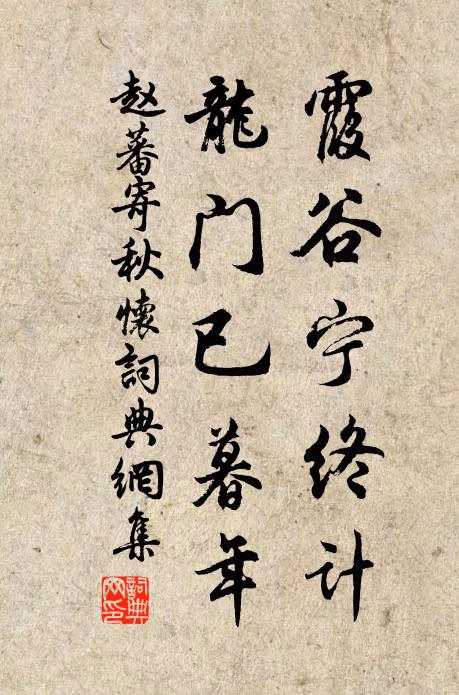 霞谷宁终计
龍门已暮年
赵蕃寄秋懷詞典網集
詞典
网印